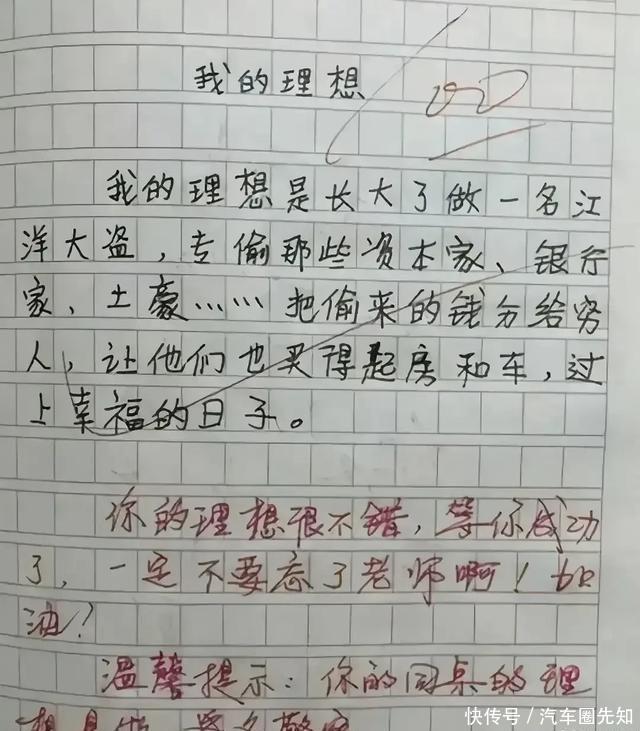 我的理想
100
我的理想是长大了做一名江
洋大盗，专偷那些资本家、银行
家、土豪……把偷来的钱分给穷
人，让他们也买得起房和车，过
上幸福的日子。
你的理想很不错，等你成功
了，一定不要忘了老师啊！加
油？
温馨提示：你的同桌的理
想是
快传号／汽车圈先知